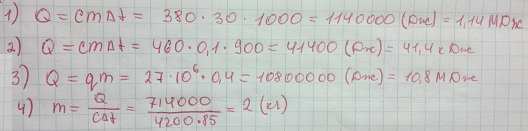 1) Q = cmΔt = 380 · 30 · 1000 = 1140000 (Дж) = 1,14 МДж
2) Q = cmΔt = 460 · 0,1 · 900 = 41400 (Дж) = 41,4 кДж
3) Q = qm = 27 · 10⁶ · 0,4 = 10800000 (Дж) = 10,8 МДж
4) m = Q / cΔt = 714000 / 4200 · 85 = 2 (кг)